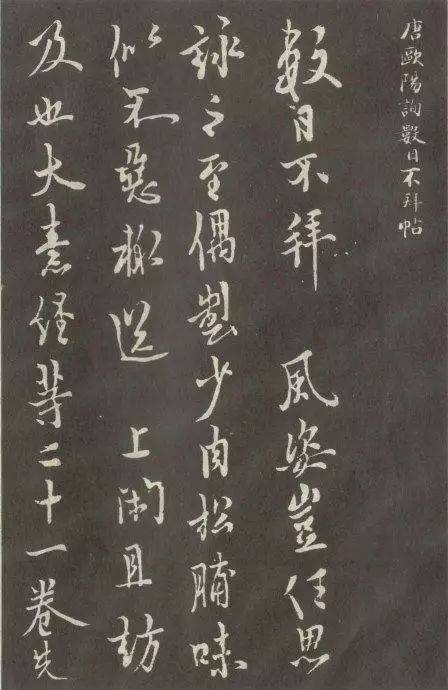 唐歐陽詢數日不拜帖
數日不拜 風姿豈任思
詠之至偶製少肉松脯味
似不惡輒送 上閑且訪
及也大素經等二十一卷先